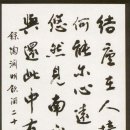 結廬在人境
何能爾心遠
悠然見南山
與還此中有
錄陶淵明飲酒二十